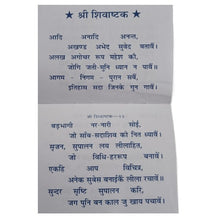 ★ श्री शिवाष्टक ★
आदि अनादि अनन्त,
अखण्ड अभेद सुवेद बतावैं।
अलख अगोचर रूप महेश कौ,
जोगि जती-मुनि ध्यान न पावैं॥
आगम - निगम - पुरान सबै,
इतिहास सदा जिनके गुन गावैं।
श्रीशिवाष्टक
बड़भागी नर-नारी सोई,
जो सांब-सदाशिव कौं नित ध्यावैं॥
सृजन, सुपालन लय लीलाहित,
जो विधि-हररूप बनावैं।
एकहि आप विचित्र,
अनेक सुबेस बनाईकैं लीला रचावैं॥
सुन्दर सृष्टि सुपालन करि,
जग पुनि बन काल जु खाय पचावैं।